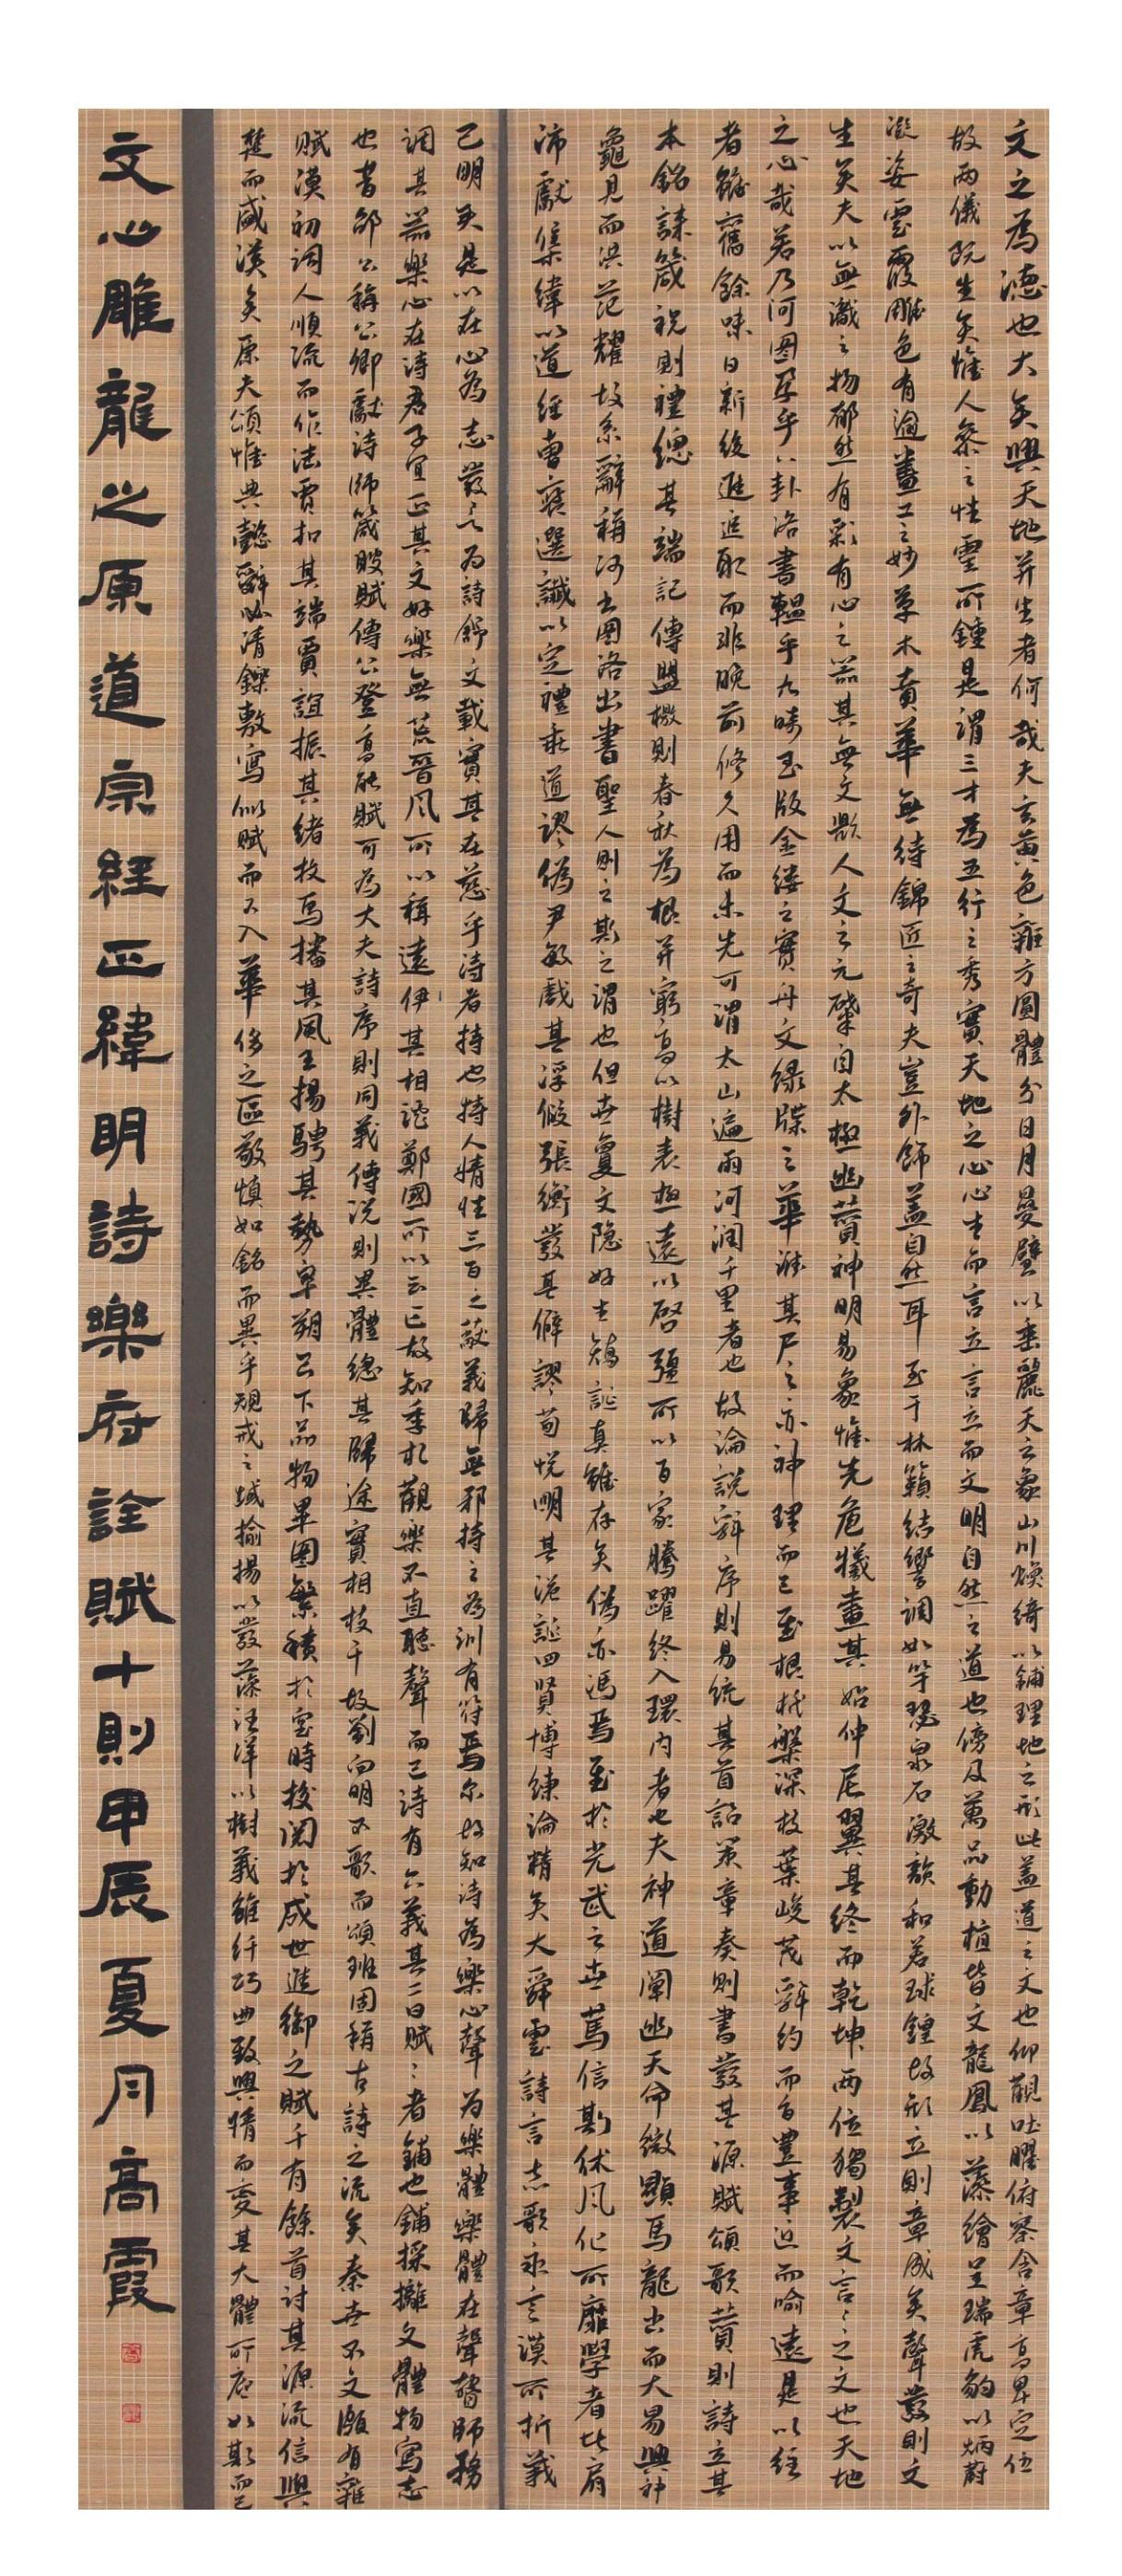 文之為德也大矣與天地并生者何哉夫玄黃色雜方圓體分日月疊璧以垂麗天之象山川煥綺以鋪理地之形此蓋道之文也仰觀吐曜俯察含章高卑定位
故兩儀既生矣惟人參之性靈所鍾是謂三才為五行之秀實天地之心心生而言立言立而文明自然之道也傍及萬品動植皆文龍鳳以藻繪呈瑞虎豹以炳蔚
凝姿雲霞雕色有逾畫工之妙草木賁華無待錦匠之奇夫豈外飾蓋自然耳至于林籟結響調如竽瑟泉石激韻和若球鍠故形立則章成矣聲發則文
生矣夫以無識之物郁然有彩有心之器其無文歟人文之元肇自太極幽贊神明易象惟先庖犧畫其始仲尼翼其終而乾坤兩位獨製文言言之文也天地
之心哉若乃河圖孕乎八卦洛書韞乎九疇玉版金鏤之實丹文綠牒之華誰其尸之亦神理而已至根柢槃深枝葉峻茂辭約而旨豐事近而喻遠是以往
者雖舊餘味日新後進追取而非晚前修久用而未先可謂太山遍雨河潤千里者也故論說辭序則易統其首詔策章奏則書發其源賦頌歌贊則詩立其
本銘誄箴祝則禮總其端記傳盟檄則春秋為根并窮高以樹表極遠以啟疆所以百家騰躍終入環內者也夫神道闡幽天命微顯馬龍出而大易興神
龜見而洪範耀故系辭稱河出圖洛出書聖人則之斯之謂也但世夐文隱好生矯誕真雖存矣偽亦憑焉至於光武之世篤信斯術風化所靡學者比肩
沛獻集緯以道經曹褒選讖以定禮乖道謬偽尹敏戲其浮假張衡發其僻謬荀悅明其詭誕四賢博練論精矣大舜雲詩言志歌永言謨所析義
已明矣是以在心為志發言為詩舒文載實其在茲乎詩者持也持人情性三百之蔽義歸無邪持之為訓有符焉尔故知詩為樂心聲為樂體樂體在聲瞽師務
調其器樂心在詩君子宜正其文好樂無荒晉風所以稱遠伊其相謔鄭國所以云亡故知季札觀樂不直聽聲而已詩有六義其二曰賦賦者鋪也鋪採摛文體物寫志
也昔邵公稱公卿獻詩師箴瞍賦傳云登高能賦可為大夫詩序則同義傳說則異體總其歸途實相枝干故劉向明不歌而頌班固稱古詩之流矣秦世不文頗有雜
賦漢初詞人順流而作陸賈扣其端賈誼振其緒枚馬播其風王揚騁其勢皋朔已下品物畢圖繁積於宣時校閱於成世進御之賦千有餘首討其源流信興
楚而盛漢矣原夫頌惟典懿辭必清鑠敷寫似賦而不入華侈之區敬慎如銘而異乎規戒之域揄揚以發藻汪洋以樹義雖纖巧曲致與情而變其大體所底如斯而已
文心雕龍之原道宗經正緯明詩樂府詮賦十則甲辰夏月高霞